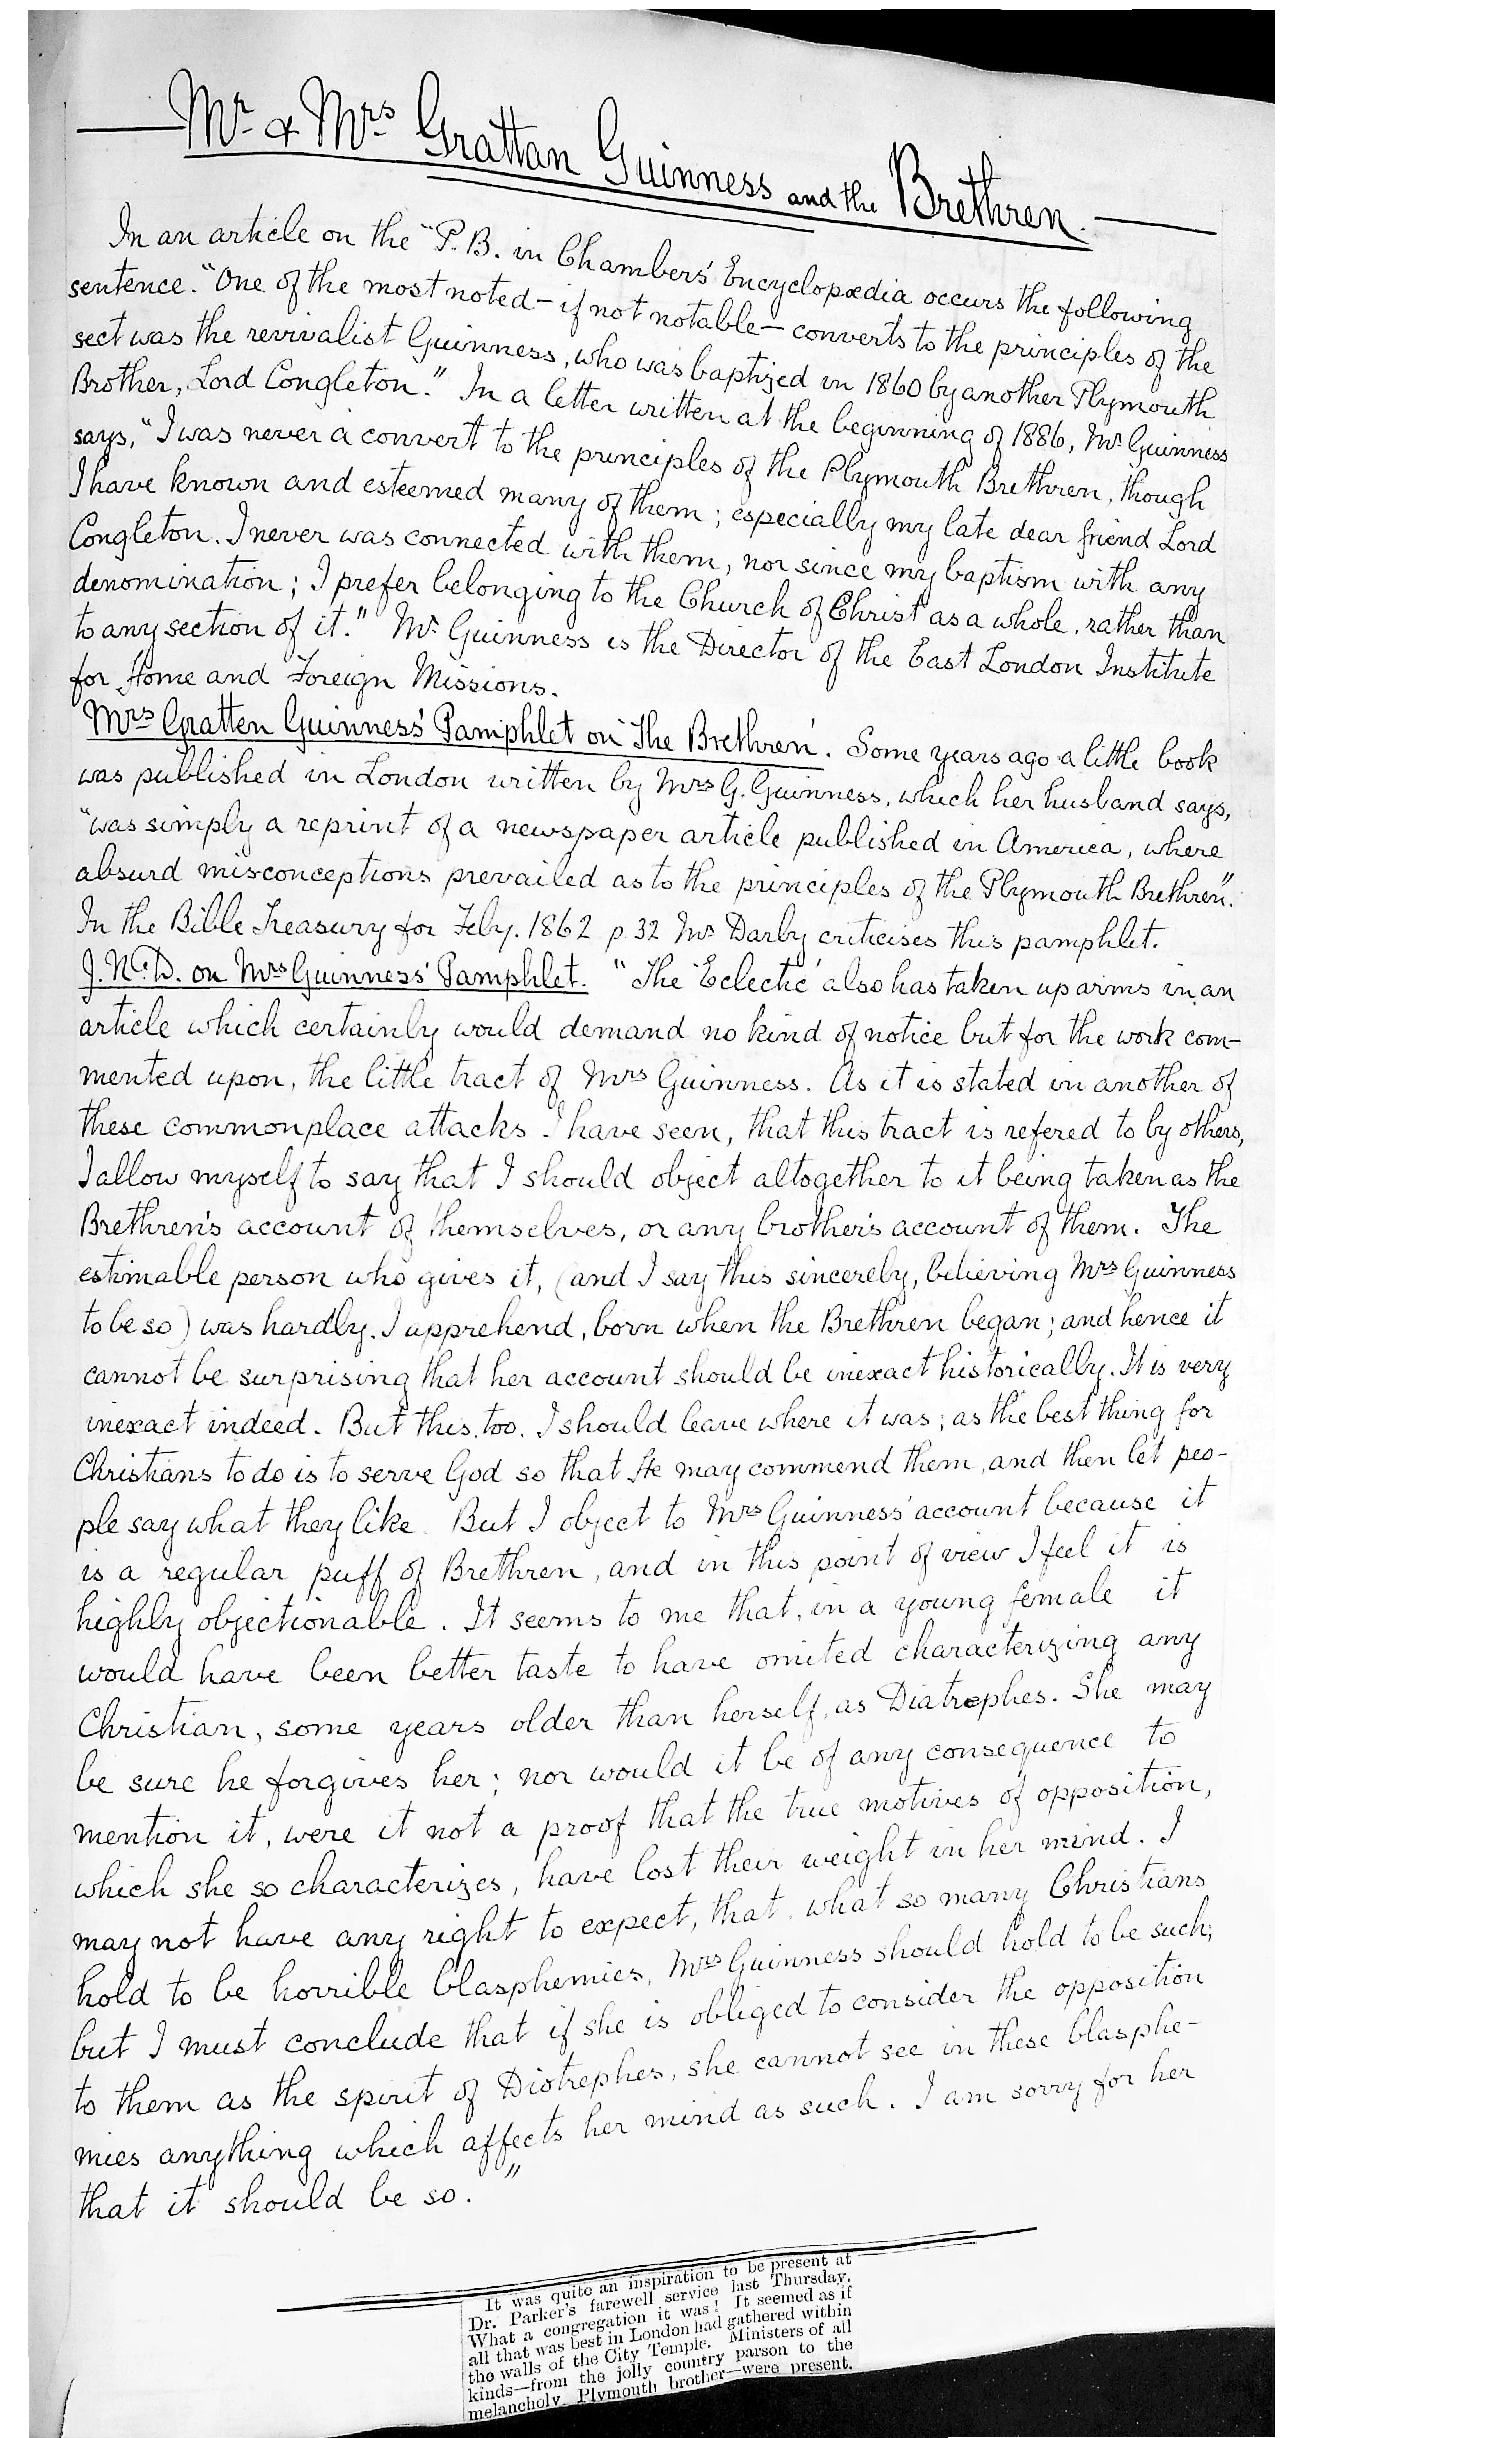 Mr & Mrs Grattan Guinness and the Brethren.
In an article on the "P.B. in Chambers' Encyclopædia occurs the following
sentence. "One of the most noted – if not notable – converts to the principles of the
sect was the revivalist Guinness, who was baptized in 1860 by another Plymouth
Brother, Lord Congleton." In a letter written at the beginning of 1886, Mr Guinness
says, "I was never a convert to the principles of the Plymouth Brethren, though
I have known and esteemed many of them; especially my late dear friend Lord
Congleton. I never was connected with them, nor since my baptism with any
denomination; I prefer belonging to the Church of Christ as a whole, rather than
to any section of it." Mr Guinness is the Director of the East London Institute
for Home and Foreign Missions.
Mrs Gratten Guinness' Pamphlet on 'The Brethren'. Some years ago a little book
was published in London written by Mrs G. Guinness, which her husband says,
"was simply a reprint of a newspaper article published in America, where
absurd misconceptions prevailed as to the principles of the Plymouth Brethren".
In the Bible Treasury for Feby. 1862 p. 32 Mr Darby criticises this pamphlet.
J.N.D. on Mrs Guinness' Pamphlet. "The 'Eclectic' also has taken up arms in an
article which certainly would demand no kind of notice but for the work com-
mented upon, the little tract of Mrs Guinness. As it is stated in another of
these commonplace attacks I have seen, that this tract is refered to by others,
I allow myself to say that I should object altogether to it being taken as the
Brethren's account of themselves, or any brother's account of them. The
estimable person who gives it, (and I say this sincerely, believing Mrs Guinness
to be so) was hardly, I apprehend, born when the Brethren began; and hence it
cannot be surprising that her account should be inexact historically. It is very
inexact indeed. But this, too, I should leave where it was; as the best thing for
Christians to do is to serve God so that He may commend them, and then let peo-
ple say what they like. But I object to Mrs Guinness' account because it
is a regular puff of Brethren, and in this point of view I feel it is
highly objectionable. It seems to me that, in a young female it
would have been better taste to have omited characterizing any
Christian, some years older than herself, as Diatrephes. She may
be sure he forgives her; nor would it be of any consequence to
mention it, were it not a proof that the true motives of opposition,
which she so characterizes, have lost their weight in her mind. I
may not have any right to expect, that, what so many Christians
hold to be horrible blasphemies, Mrs Guinness should hold to be such;
but I must conclude that if she is obliged to consider the opposition
to them as the spirit of Diotrephes, she cannot see in these blasphe-
mies anything which affects her mind as such. I am sorry for her
that it should be so."
It was quite an inspiration to be present at
Dr. Parker's farewell service last Thursday.
What a congregation it was! It seemed as if
all that was best in London had gathered within
the walls of the City Temple. Ministers of all
kinds—from the jolly country parson to the
melancholy Plymouth brother—were present.